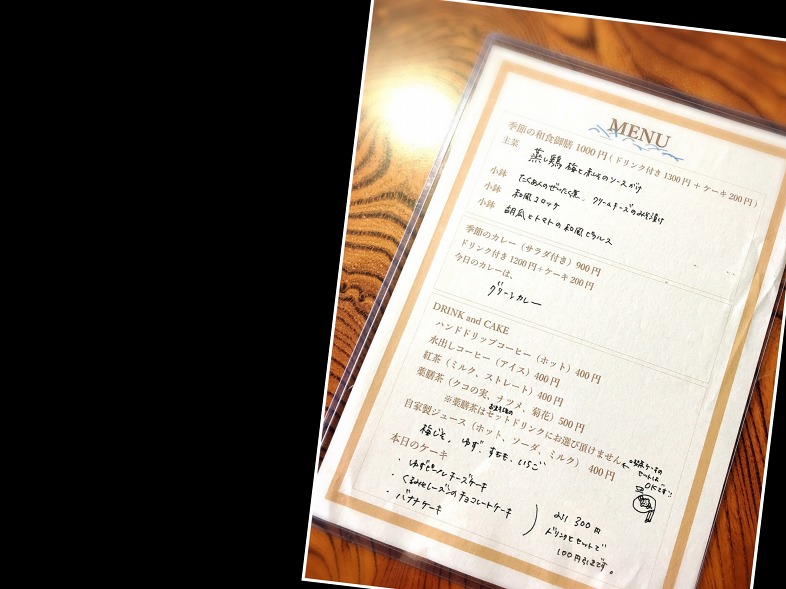 MENU
季節の和食御膳 1000円(ドリンク付き1300円+ケーキ200円)
主菜 蒸し鶏 梅と赤しそのソースがけ
小鉢 たくあんのぜいたく煮、クリームチーズのみそ漬け
小鉢 和風コロッケ
小鉢 胡瓜とトマトの和風ピクルス
季節のカレー(サラダ付き)900円
ドリンク付き1200円+ケーキ200円
今日のカレーは、
グリーンカレー
DRINK and CAKE
ハンドドリップコーヒー(ホット)400円
水出しコーヒー(アイス)400円
紅茶(ミルク、ストレート)400円
薬膳茶(クコの実、ナツメ、菊花)500円
※薬膳茶はお食事のセットドリンクにお選び頂けません
←喫茶ケーキの
セットは
OKです!!
自家製ジュース(ホット、ソーダ、ミルク) 400円
梅じそ、ゆず、すもも、いちご
本日のケーキ
・ゆずピールチーズケーキ
・くるみとレーズンのチョコレートケーキ
・バナナケーキ
各 300円
ドリンクとセットで
100円引きです。